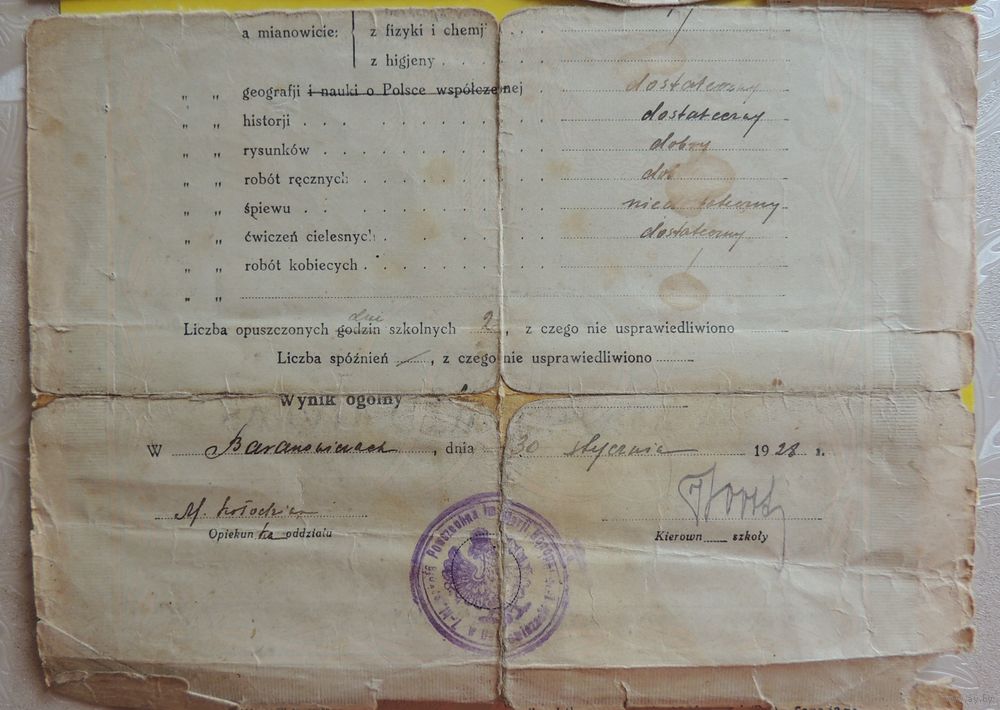 a mianowicie: z fizyki i chemji
z higjeny
„ „ geografji i nauki o Polsce współczesnej dostateczny
„ „ historji dostateczny
„ „ rysunków dobry
„ „ robót ręcznych
„ „ śpiewu
„ „ ćwiczeń cielesnych dostateczny
„ „ robót kobiecych
„ „
dni
Liczba opuszczonych godzin szkolnych 2, z czego nie usprawiedliwiono
Liczba spóźnień , z czego nie usprawiedliwiono
Wynik ogólny
W Baranowiczach, dnia 30 stycznia 1928 r.
Opiekun ka oddziału
Kierown szkoły
Powszechna